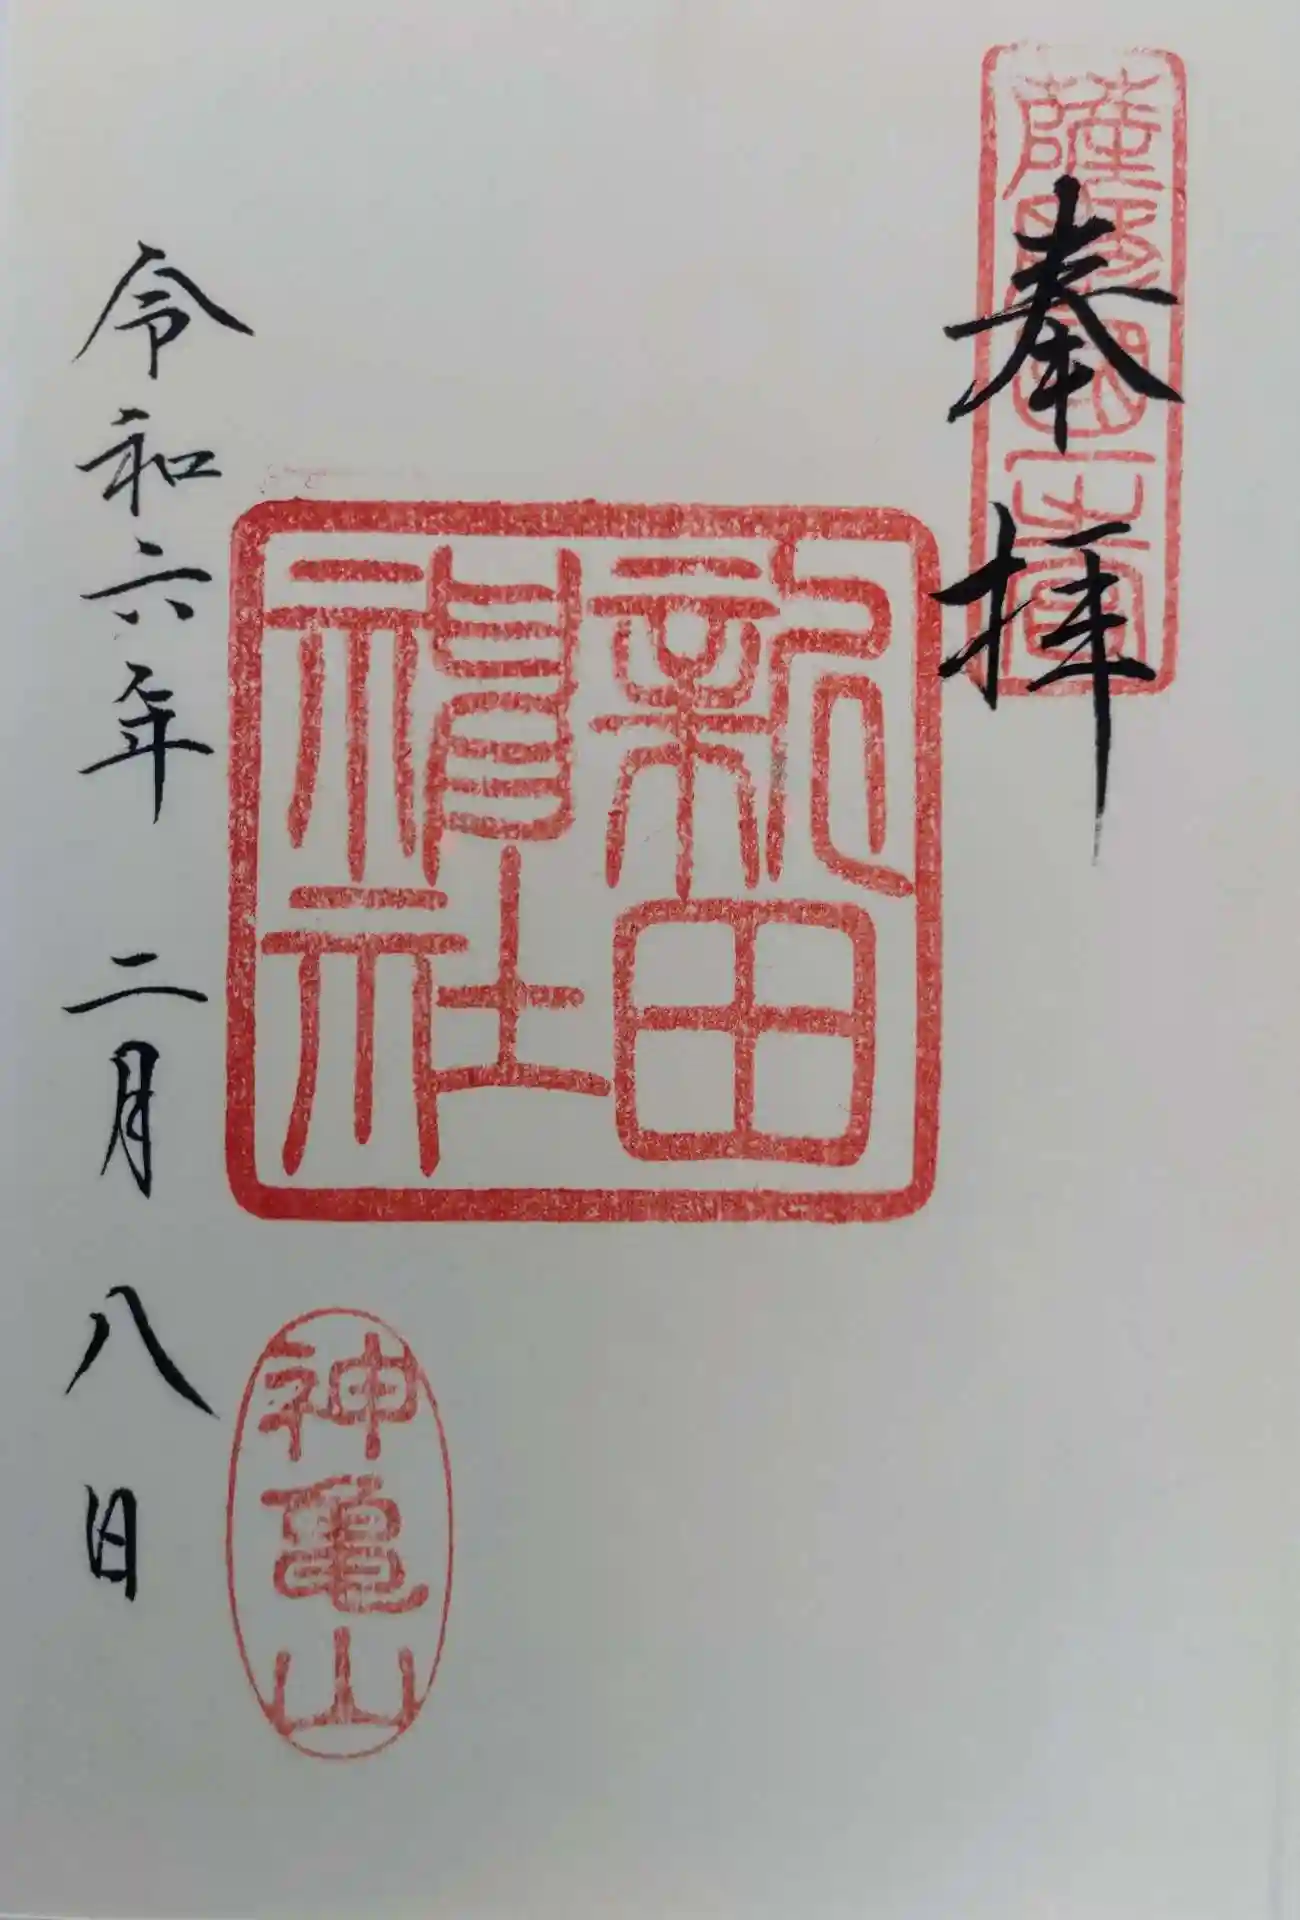 薩摩國一之宮
奉拝
新田
神社
神亀山
令和六年 二月 八日